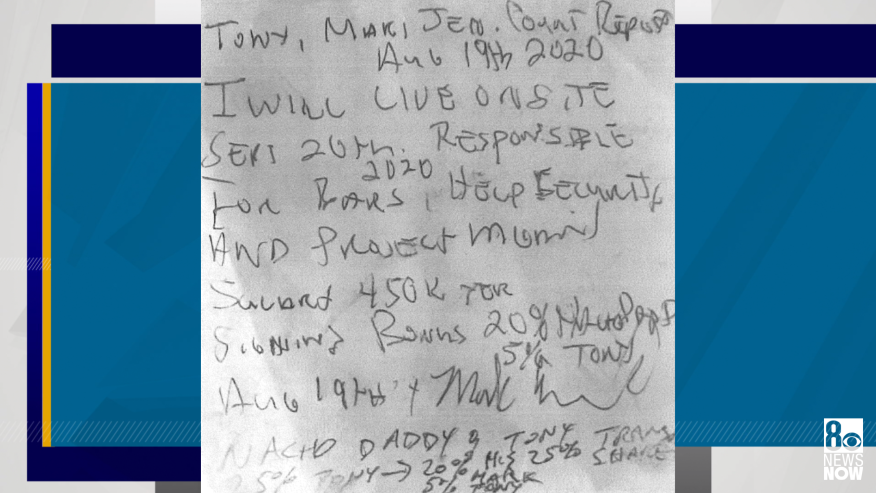 TONY, MARK, JEN. Count Report
AUG 19th 2020
I WILL LIVE ON SITE
SEPT 20th. RESPONSIBLE
2020
FOR BARS, HELP SECURITY
AND PROJECT
450K
SIGNING BONUS 20% Nacho Daddy
5% TONY
AUG 19th Mark
NACHO DADDY TONY TRANS
20% HIS 25% SHARE
5% TONY → MARK
5% TONY
8 NEWS NOW